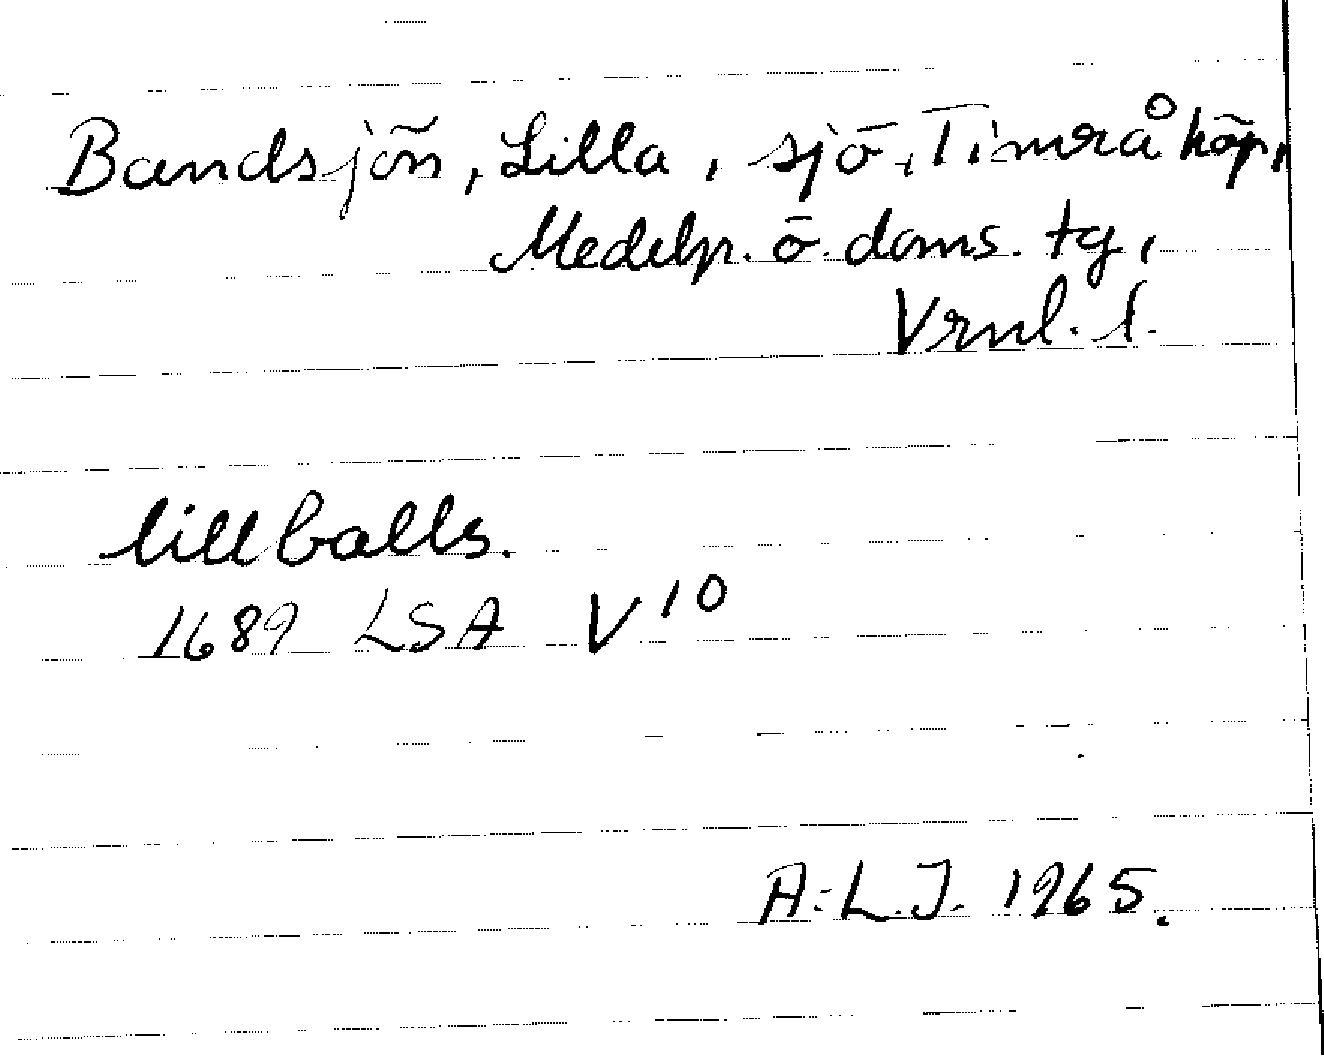 Bandsjön, Lilla, sjö, Timrå köp,
Medelp. ö. doms. tg,
Vrnl. l.
lillballs.
1689 LSA V10
A.-L.J. 1965.